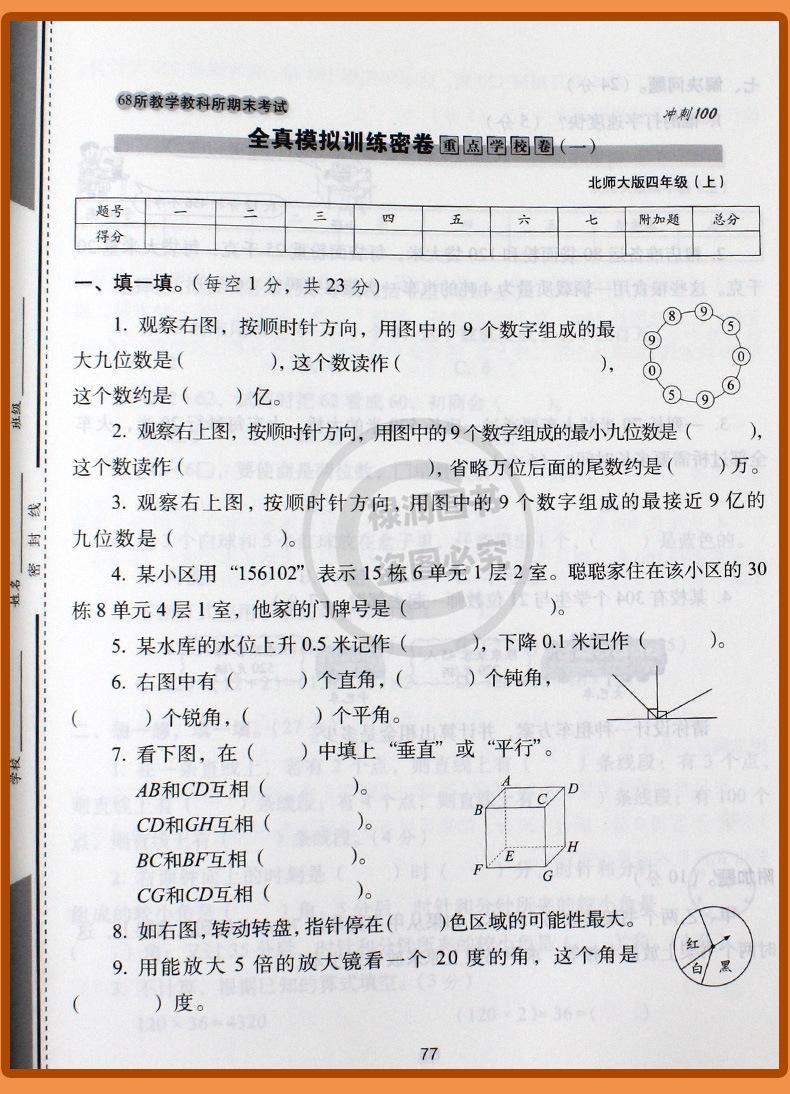 68所教学教科所期末考试
冲刺100
全真模拟训练密卷 重点学校卷(一)
北师大版四年级(上)
题号 一 二 三 四 五 六 七 附加题 总分
得分
一、填一填。(每空1分,共23分)
1. 观察右图,按顺时针方向,用图中的9个数字组成的最
大九位数是( ),这个数读作( ),
这个数约是( )亿。
8 9 5 0 6 9 5 0 9
2. 观察右上图,按顺时针方向,用图中的9个数字组成的最小九位数是( ),
这个数读作( ),省略万位后面的尾数约是( )万。
3. 观察右上图,按顺时针方向,用图中的9个数字组成的最接近9亿的
九位数是( )。
4. 某小区用“156102”表示15栋6单元1层2室。聪聪家住在该小区的30
栋8单元4层1室,他家的门牌号是( )。
5. 某水库的水位上升0.5米记作( ),下降0.1米记作( )。
6. 右图中有( )个直角,( )个钝角,
( )个锐角,( )个平角。
7. 看下图,在( )中填上“垂直”或“平行”。
AB和CD互相( )。
CD和GH互相( )。
BC和BF互相( )。
CG和CD互相( )。
A D
B C
E H
F G
8. 如右图,转动转盘,指针停在( )色区域的可能性最大。
红
白 黑
9. 用能放大5倍的放大镜看一个20度的角,这个角是
( )度。
77
班级
姓名
学校
密封线
禄润图书
盗图必究